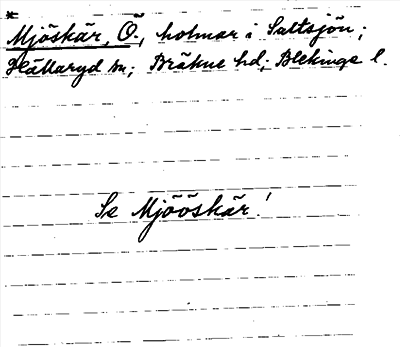 *
Mjöskär, Ö., holmar i Saltsjön;
Hällaryd sn; Bräkne hd; Blekinge l.
Se Mjööskär!